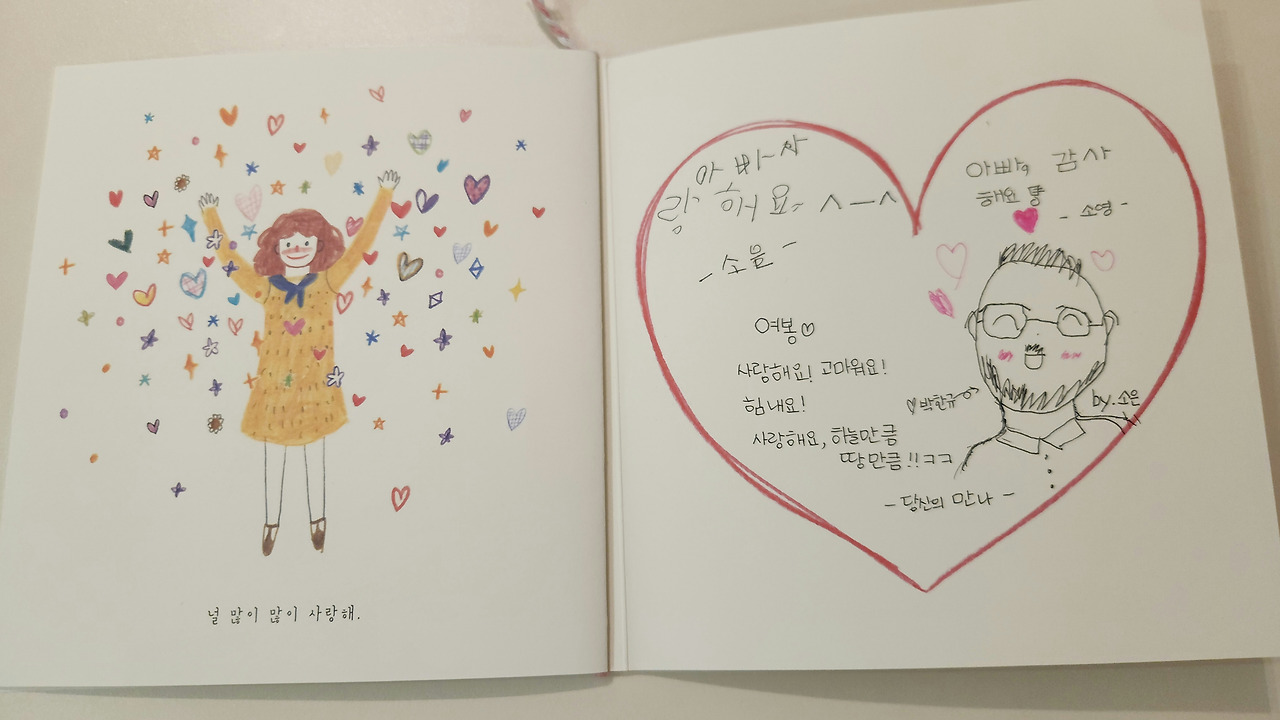 널 많이 많이 사랑해.
아빠~사
랑해요~ ^-^
- 소율 -
아빠, 감사
해요
- 소영 -
여봉♡
사랑해요! 고마워요!
힘내요!
사랑해요, 하늘만큼
땅만큼!!ㅋㅋ
- 당신의 만나 -
♡박찬규→
by. 소은